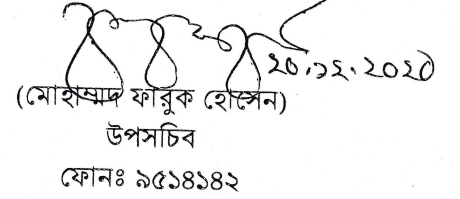 ২০.১২.২০২০
(মোহাম্মদ ফারুক হোসেন)
উপসচিব
ফোনঃ ৯৫১৪১৪২